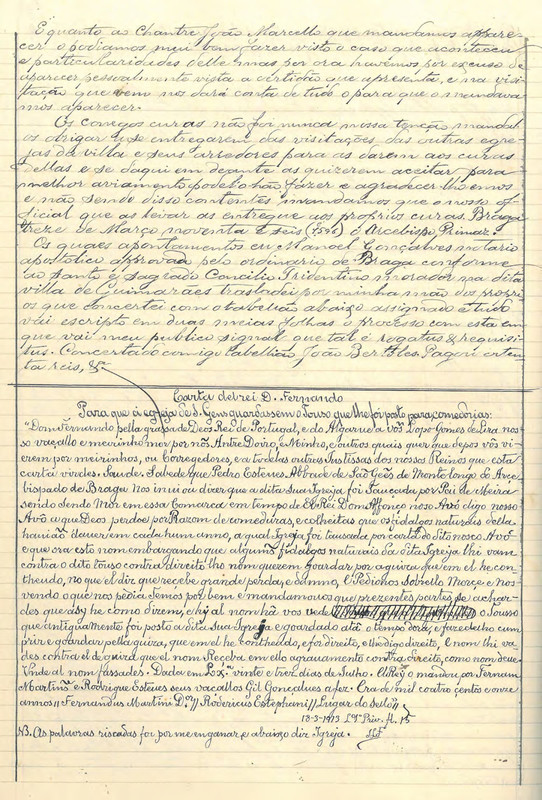 E quanto ao Chantre João Marcello que mandamos appare-
cer o podiamos mui bem fazer visto o caso que aconteceu
e particularidades delle mas por ora havemos por excuso de
aparecer pessoalmente vista a certidão que apresenta, e na visi-
tação que vem nos dará conta de tudo o para que o mandava
mos aparecer.
Os conegos curas não foi nunca nossa tenção mandal
os obrigar a se entregarem das visitações das outras egre-
jas da villa e seus arredores para as darem aos curas
dellas e se daqui em deante as quizerem aceitar para
melhor aviamento podel-o-hão fazer e agradecer-lh'o-emos
e não sendo disso contentes mandamos que o nosso of-
ficial que as levar as entregue aos proprios curas. Braga
treze de Março noventa e seis (1596) o Arcebispo Primaz.
Os quaes apontamentos eu Manoel Gonçalves notario
apostolico approvado pelo ordinario de Braga conforme
ao santo e sagrado Concilio Tridentino morador na dita
villa de Guimarães trasladei por minha mão dos propri
os que concertei com o tabellião abaixo assignado e tudo
vai escripto em duas meias folhas o processo com esta em
que vai meu publico signal que tal é rogatus & requisi-
tus. Concertado comigo tabellião João Paguei oiten
ta reis, &.
Carta del rei D. Fernando
Para que á egreja de S. Gens guardassem o Touso que lhe foi posto para comedorias:
"Dom Fernando pella graça de Deos Rei de Portugal, e do Algarue a vós Lopo Gomes de Lira nos-
so vaçallo e meirinho mor por nós Antre Doiro, e Minho, e outros quais quer que depos vós vi-
erem por meirinhos, ou Corregedores, e a todelas outras Justissas dos nossos Reinos que esta
carta virdes. Saude: Sabede que Pedro Esteues Abbade de São Gẽes de Monte longo do Arce-
bispado de Braga Nos inuiou diser que a dita Sua Igreja foi Tauçada por Rui de Meira
sendo Sende Mór em essa Comarca em tempo de El Rei Dom Affonço nosso Avó digo nosso
Avó a que Deos perdoe por Razom de comeduras, e colheitas que os fidalgos naturais della
haviaõ dauer em cada hum anno, a qual Igreja foi tausada por carta do dito nosso Avó
e que ora esto nom embargando que alguñs fidalgos naturais da dita Igreja lhi vam
contra o dito touso contra direito lho nom querem goardar por aguisa que em el he con-
theudo, no que el dir que recebe grande perda, e damno, E Pedio nos sobrello Merçe e nos
vendo o que nos pedia Temos por bem e mandamouos que prezentes partes se achar-
des que asy he como dirẽm, e hy al nom há vos vede o Tousso
que antiguamente foi posto a dita sua Igreja e goardado atá o tempo dora, e fazedelho cum
prir e goardar pella guiza, que em el he contheudo, e for direito, e lhe digo direito, E nom lhi va
des contra el de guiza que el nom Receba em ello agrauamento contra direito, como nom deue
Unde al nom façades. Dada em Lx.ª vinte e trez dias de Julho. ElRey o mandou por Fernam
Martiñs e Rodrigue Esteues seus vacallos Gil Gonçalues a fez. Era de mil coatro çentos e onze
annos // Fernandus Martini D.º // Rodericus Estephani // Lugar do Sello //
18-3-1913 Lº Priv. fl. 15
NB. As palavras riscadas foi por me enganar, e abaixo dir Igreja.